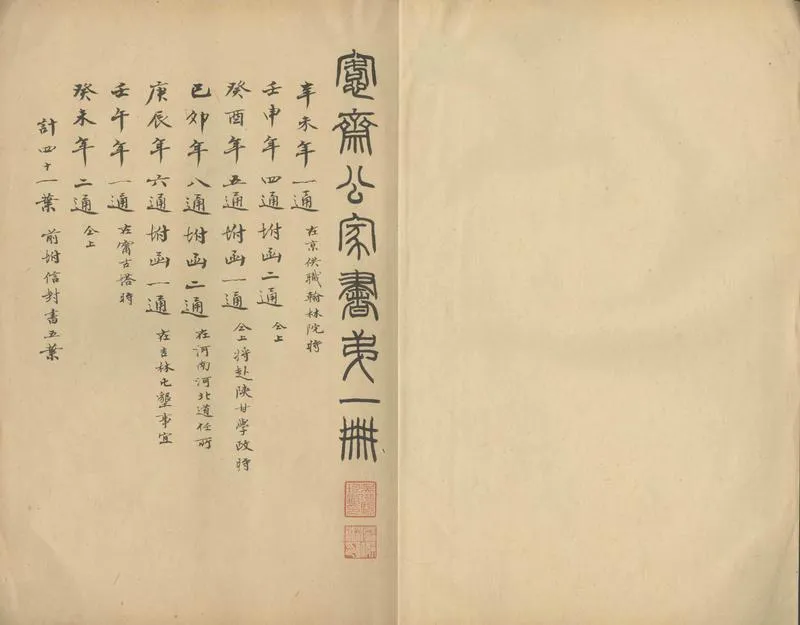 愙齋公家書弟一冊
辛未年一通 在京供職翰林院時
壬申年四通坿函二通 仝上
癸酉年五通坿函一通 仝上將赴陝甘學政時
己卯年八通坿函二通 在河南河北道任所
庚辰年六通坿函一通 在吉林屯墾事宜
壬午年一通 在甯古塔時
癸未年二通 仝上
計四十一葉 前坿信封書五葉